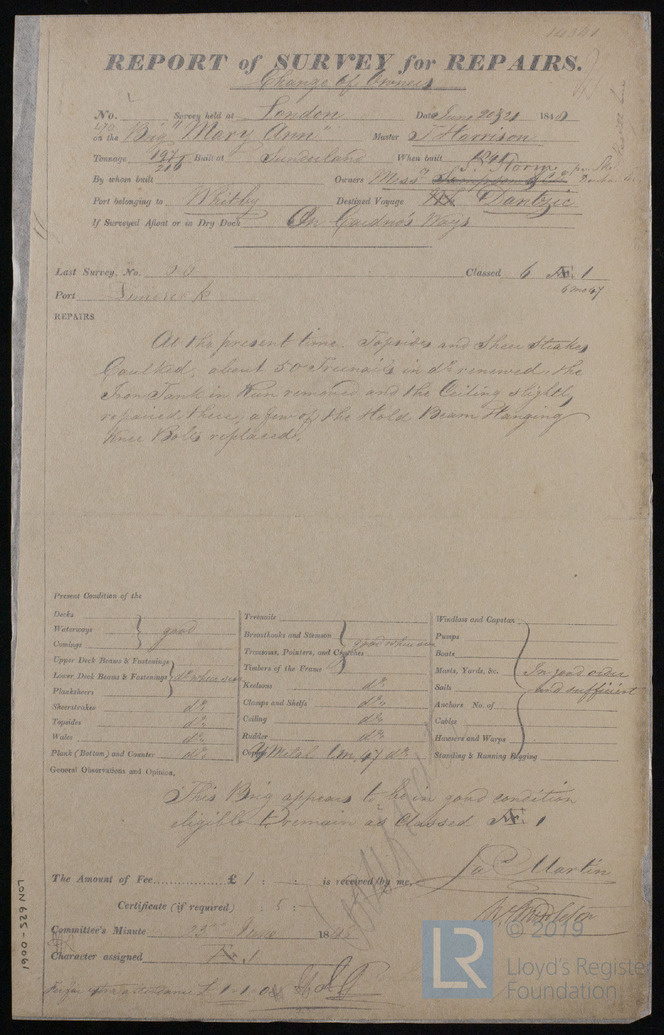 REPORT of SURVEY for REPAIRS.
Change of Owners
No. Survey held at London Date June 20 & 21 1848
on the Brig "Mary Ann" Master T Harrison
Tonnage 197 216 Built at Sunderland When built 1841
By whom built Owners Messrs T. Storm
Port belonging to Whitby Destined Voyage Dantzic
If Surveyed Afloat or in Dry Dock On Gardno's Ways
Last Survey, No. Classed 6 Æ 1
Port Limerick 6 mo 47
REPAIRS
At the present time. Topsides and Sheer Strakes
Caulked, about 50 Treenails in do renewed the
Iron Tank in Run removed and the Ceiling slightly
repaired there, a few of the Hold Beam Hanging
Knee Bolts replaced.
Present Condition of the
Decks
Waterways good
Comings
Upper Deck Beams & Fastenings
Lower Deck Beams & Fastenings do where seen
Planksheers
Sheerstrakes do
Topsides do
Wales do
Plank (Bottom) and Counter do
Treenails
Breasthooks and Stemson good where seen
Transoms, Pointers, and Crutches
Timbers of the Frame
Keelsons do
Clamps and Shelfs do
Ceiling do
Rudder do
Y Metal 47 do
Windlass and Capstan
Pumps
Boats
Masts, Yards, &c. In good order
Sails and sufficient
Anchors No. of
Cables
Hawsers and Warps
Standing & Running Rigging
General Observations and Opinion,
This Brig appears to be in good condition
eligible to remain as Classed Æ 1
The Amount of Fee £ 1 : : is received by me, Jas Martin
Certificate (if required) : 5 :
Committee's Minute 23rd June 1848
Character assigned Æ 1
LON 625-0061
LR
© 2019
Lloyd's Register
Foundation